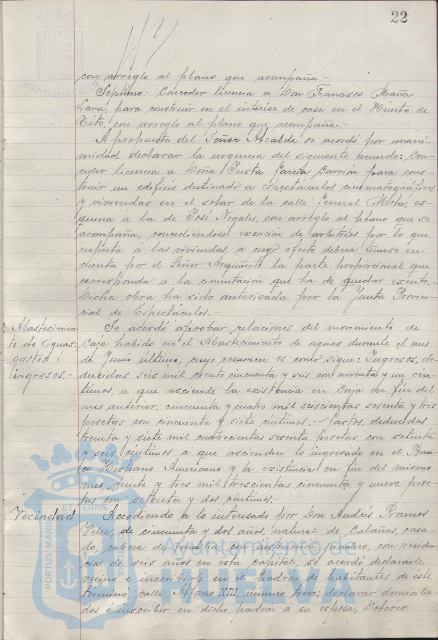 22
con arreglo al plano que acompaña.-
Séptimo: Conceder licencia a Don Francisco Maña
Lara, para construir en el interior de casa en el Huerto de
Tito, con arreglo al plano que acompaña.-
A propuesta del Señor Alcalde se acordó por unani-
midad declarar la urgencia del siguiente acuerdo: Con-
ceder licencia a Doña Justa García Carrión para cons-
truir un edificio destinado a espectáculos cinematográficos
y viviendas en el solar de la calle General Mola, es-
quina a la de José Nogales, con arreglo al plano que se
acompaña, concediéndole exención de arbitrios por lo que
respecta a las viviendas, a cuyo efecto deberá tenerse en
cuenta por el Señor Arquitecto la parte proporcional que
corresponda a la cimentación que ha de quedar exenta.-
Dicha obra ha sido autorizada por la Junta Provin-
cial de Espectáculos.-
Abastecimien-
to de Aguas:
gastos é
ingresos.-
Se acordó aprobar relaciones del movimiento de
Caja habido en el Abastecimiento de aguas durante el mes
de Junio último, cuyo resumen es como sigue: Ingresos, de-
ducidas seis mil ciento cincuenta y seis con noventa y un cén-
timos, a que asciende la existencia en Caja de fin del
mes anterior, cincuenta y cuatro mil seiscientas sesenta y tres
pesetas con cincuenta y siete céntimos.- Gastos, deducidas
treinta y siete mil cuatrocientas sesenta pesetas con setenta
y seis céntimos a que asciende lo ingresado en el Ban-
co Hispano Americano y la existencia en fin del mismo
mes, veinte y tres mil trescientas cincuenta y nueve pese-
tas con setenta y dos céntimos.-
Vecindad
Accediendo a lo interesado por Don Andrés Ramos
Vélez, de cincuenta y dos años, natural de Calañas, casa-
do, cabeza de familia, con residen-
cia de seis años en esta capital, se acordó declararle
vecino e inscribirle en el padrón de habitantes de este
término, calle Alfonso XIII, número tres; declarar domicilia-
dos é inscribir en dicho padrón a su esposa, Dolores
Ayuntamiento de
HUELVA
PORTUS MARIS ET TERRAE